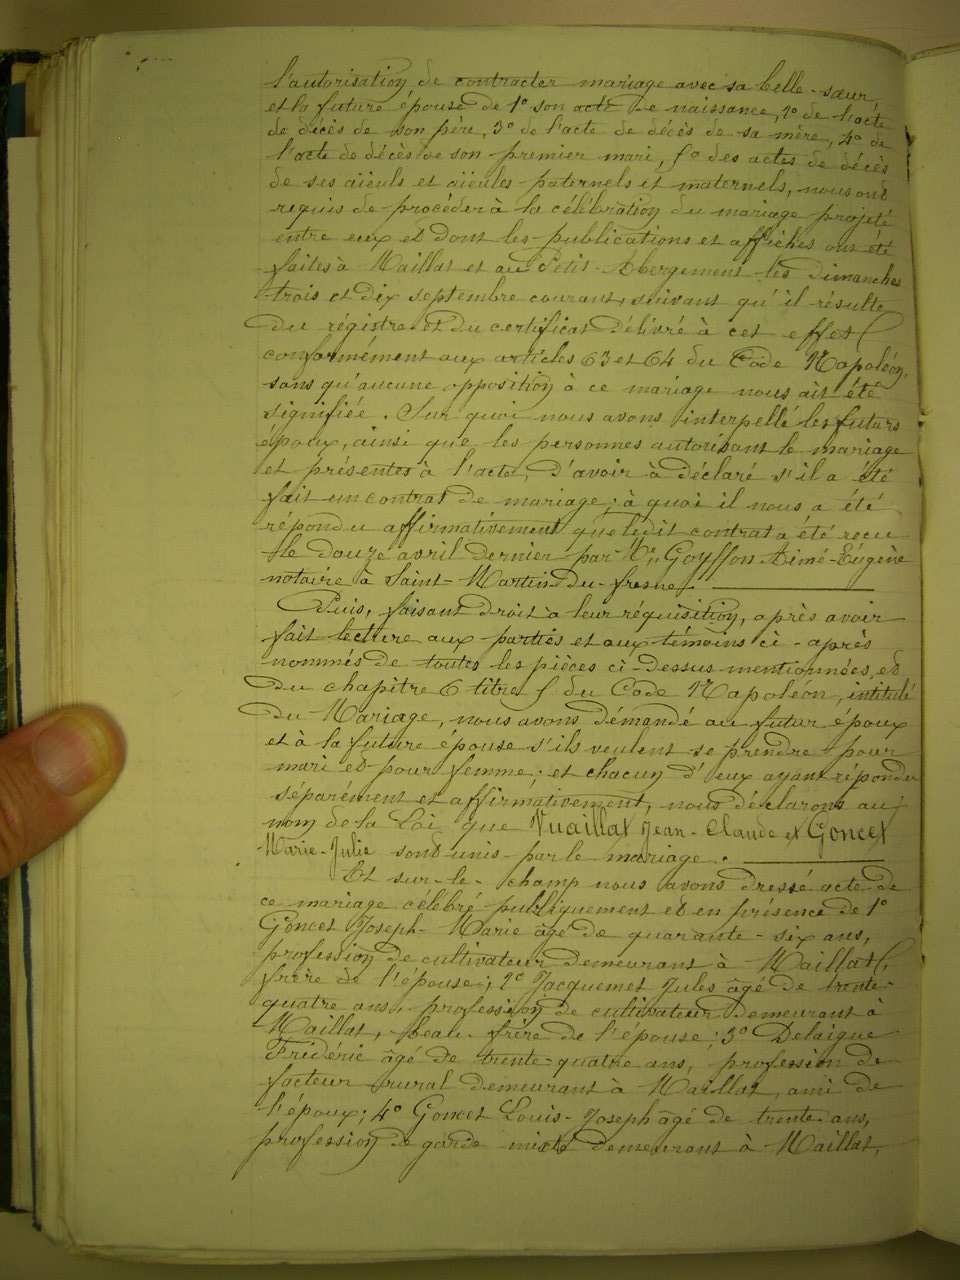 l'autorisation de contracter mariage avec sa belle-sœur
et la future épouse de 1° son acte de naissance, 2° de l'acte
de décès de son père, 3° de l'acte de décès de sa mère, 4° de
l'acte de décès de son premier mari, 5° des actes de décès
de ses aïeuls et aïeules paternels et maternels, nous ont
requis de procéder à la célébration du mariage projeté
entre eux et dont les publications et affiches ont été
faites à Maillat et au Petit-Abergement les dimanches
trois et dix septembre courant, suivant qu'il résulte
du régistre et du certificat délivré à cet effet
conformément aux articles 63 et 64 du Code Napoléon,
sans qu'aucune opposition à ce mariage nous ait été
signifiée. Sur quoi nous avons interpellé les futurs
époux, ainsi que les personnes autorisant le mariage
et présentes à l'acte, d'avoir à déclaré s'il a été
fait un contrat de mariage; à quoi il nous a été
répondu affirmativement que ledit contrat a été reçu
le douze avril dernier par Me Goyffon Aimé-Eugène
notaire à Saint-Martin-du-fresne.
Puis, faisant droit à leur réquisition, après avoir
fait lecture aux parties et aux témoins ci-après
nommés de toutes les pièces ci-dessus mentionnées, et
du chapitre 6 titre 5 du Code Napoléon, intitulé
du Mariage, nous avons démandé au futur époux
et à la future épouse s'ils veulent se prendre pour
mari et pour femme; et chacun d'eux ayant répondu
séparément et affirmativement, nous déclarons au
nom de la Loi que Vuaillat Jean-Claude et Goncet
Marie-Julie sont unis par le mariage.
Et sur-le-champ nous avons dressé acte de
ce mariage célébré publiquement et en présence de 1°
Goncet Joseph-Marie âgé de quarante-six ans,
profession de cultivateur demeurant à Maillat,
frère de l'épouse; 2° Jacquemet Jules âgé de trente-
quatre ans, profession de cultivateur demeurant à
Maillat, beau-frère de l'épouse; 3° Delaigue
Frédéric âgé de trente-quatre ans, profession de
facteur rural demeurant à Maillat, ami de
l'époux; 4° Goncet Louis-Joseph âgé de trente ans,
profession de garde mixte demeurant à Maillat,